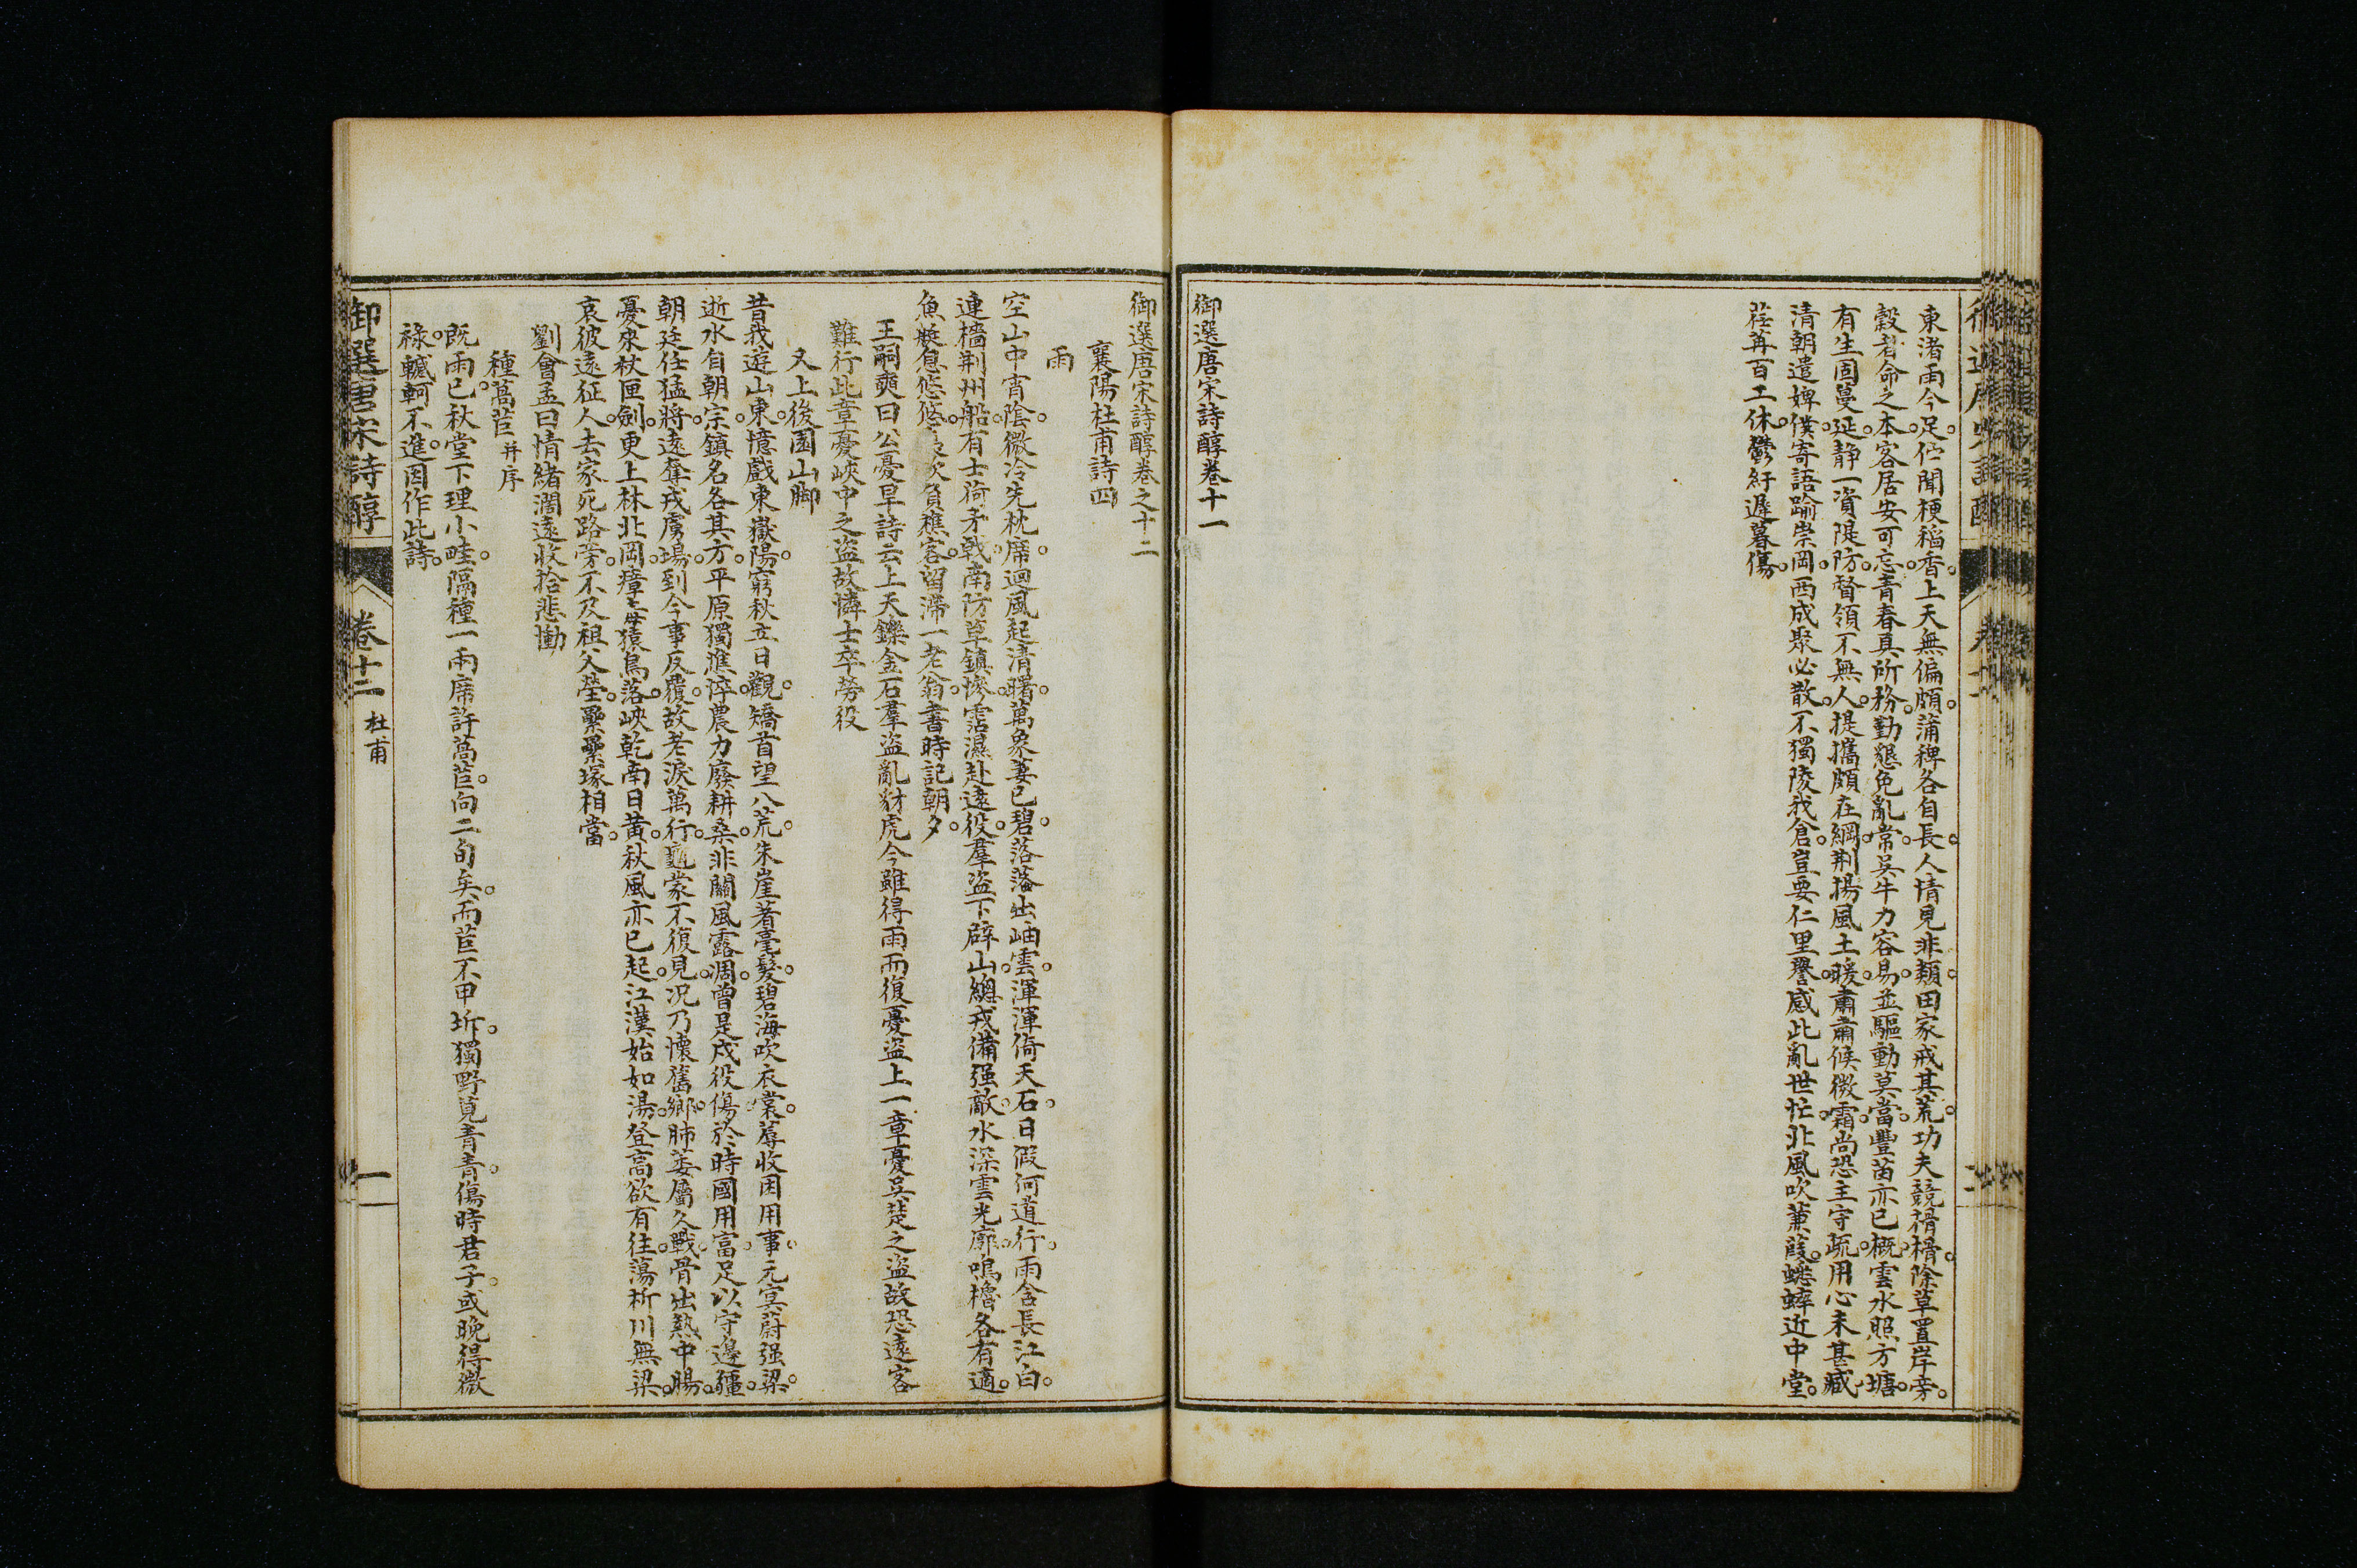 東渚雨今足。佇聞粳稻香。上天無偏頗。蒲稗各自長。人情見非類。田家戒其荒。功夫競搰搰。除草置岸旁。
穀者命之本。客居安可忘。青春具所務。勤懇免亂常。吳牛力容易。並驅動莫當。豐苗亦已穊。雲水照方塘。
有生固蔓延。靜一資隄防。督領不無人。提攜頗在綱。荆揚風土暖。肅肅候微霜。尚恐主守疏。用心未甚臧。
清朝遣婢僕。寄語踰崇岡。西成聚必散。不獨陵我倉。豈要仁里譽。感此亂世忙。北風吹蒹葭。蟋蟀近中堂。
荏苒百工休。鬱紆遲暮傷。
御選唐宋詩醇卷十一
御選唐宋詩醇卷之十二
襄陽杜甫詩四
雨
空山中宵陰。微冷先枕席。迴風起清曙。萬象萋已碧。落落出岫雲。渾渾倚天石。日假何道行。雨含長江白。
連檣荆州船。有士荷矛戟。南防草鎮慘。霑濕赴遠役。羣盜下辟山。總戎備强敵。水深雲光廓。鳴櫓各有適。
魚艇息悠悠。夷歌負樵客。留滯一老翁。書時記朝夕。
王嗣奭曰公憂旱詩云上天鑠金石羣盜亂豺虎今雖得雨而復憂盜上一章憂吳楚之盜故恐遠客
難行此章憂峽中之盜故憐士卒勞役
又上後園山脚
昔我遊山東。憶戲東嶽陽。窮秋立日觀。矯首望八荒。朱崖著毫髮。碧海吹衣裳。蓐收困用事。元冥蔚强梁。
逝水自朝宗。鎮名各其方。平原獨憔悴。農力廢耕桑。非關風露凋。曾是戍役傷。於時國用富。足以守邊疆。
朝廷任猛將。遠奪戎虜場。到今事反覆。故老淚萬行。龜蒙不復見。況乃懷舊鄉。肺萎屬久戰。骨出熱中腸。
憂來杖匣劍。更上林北岡。瘴毒猿鳥落。峽乾南日黄。秋風亦已起。江漢始如湯。登高欲有往。蕩析川無梁。
哀彼遠征人。去家死路旁。不及祖父塋。纍纍塚相當。
劉會孟曰情緒濶遠收拾悲慟
種萵苣 并序
既雨已。秋堂下理小畦。隔種一兩席許萵苣。向二旬矣。而苣不甲坼。獨野莧青青。傷時君子。或晚得微
祿。轗軻不進。因作此詩。
御選唐宋詩醇 卷十二 杜甫 一